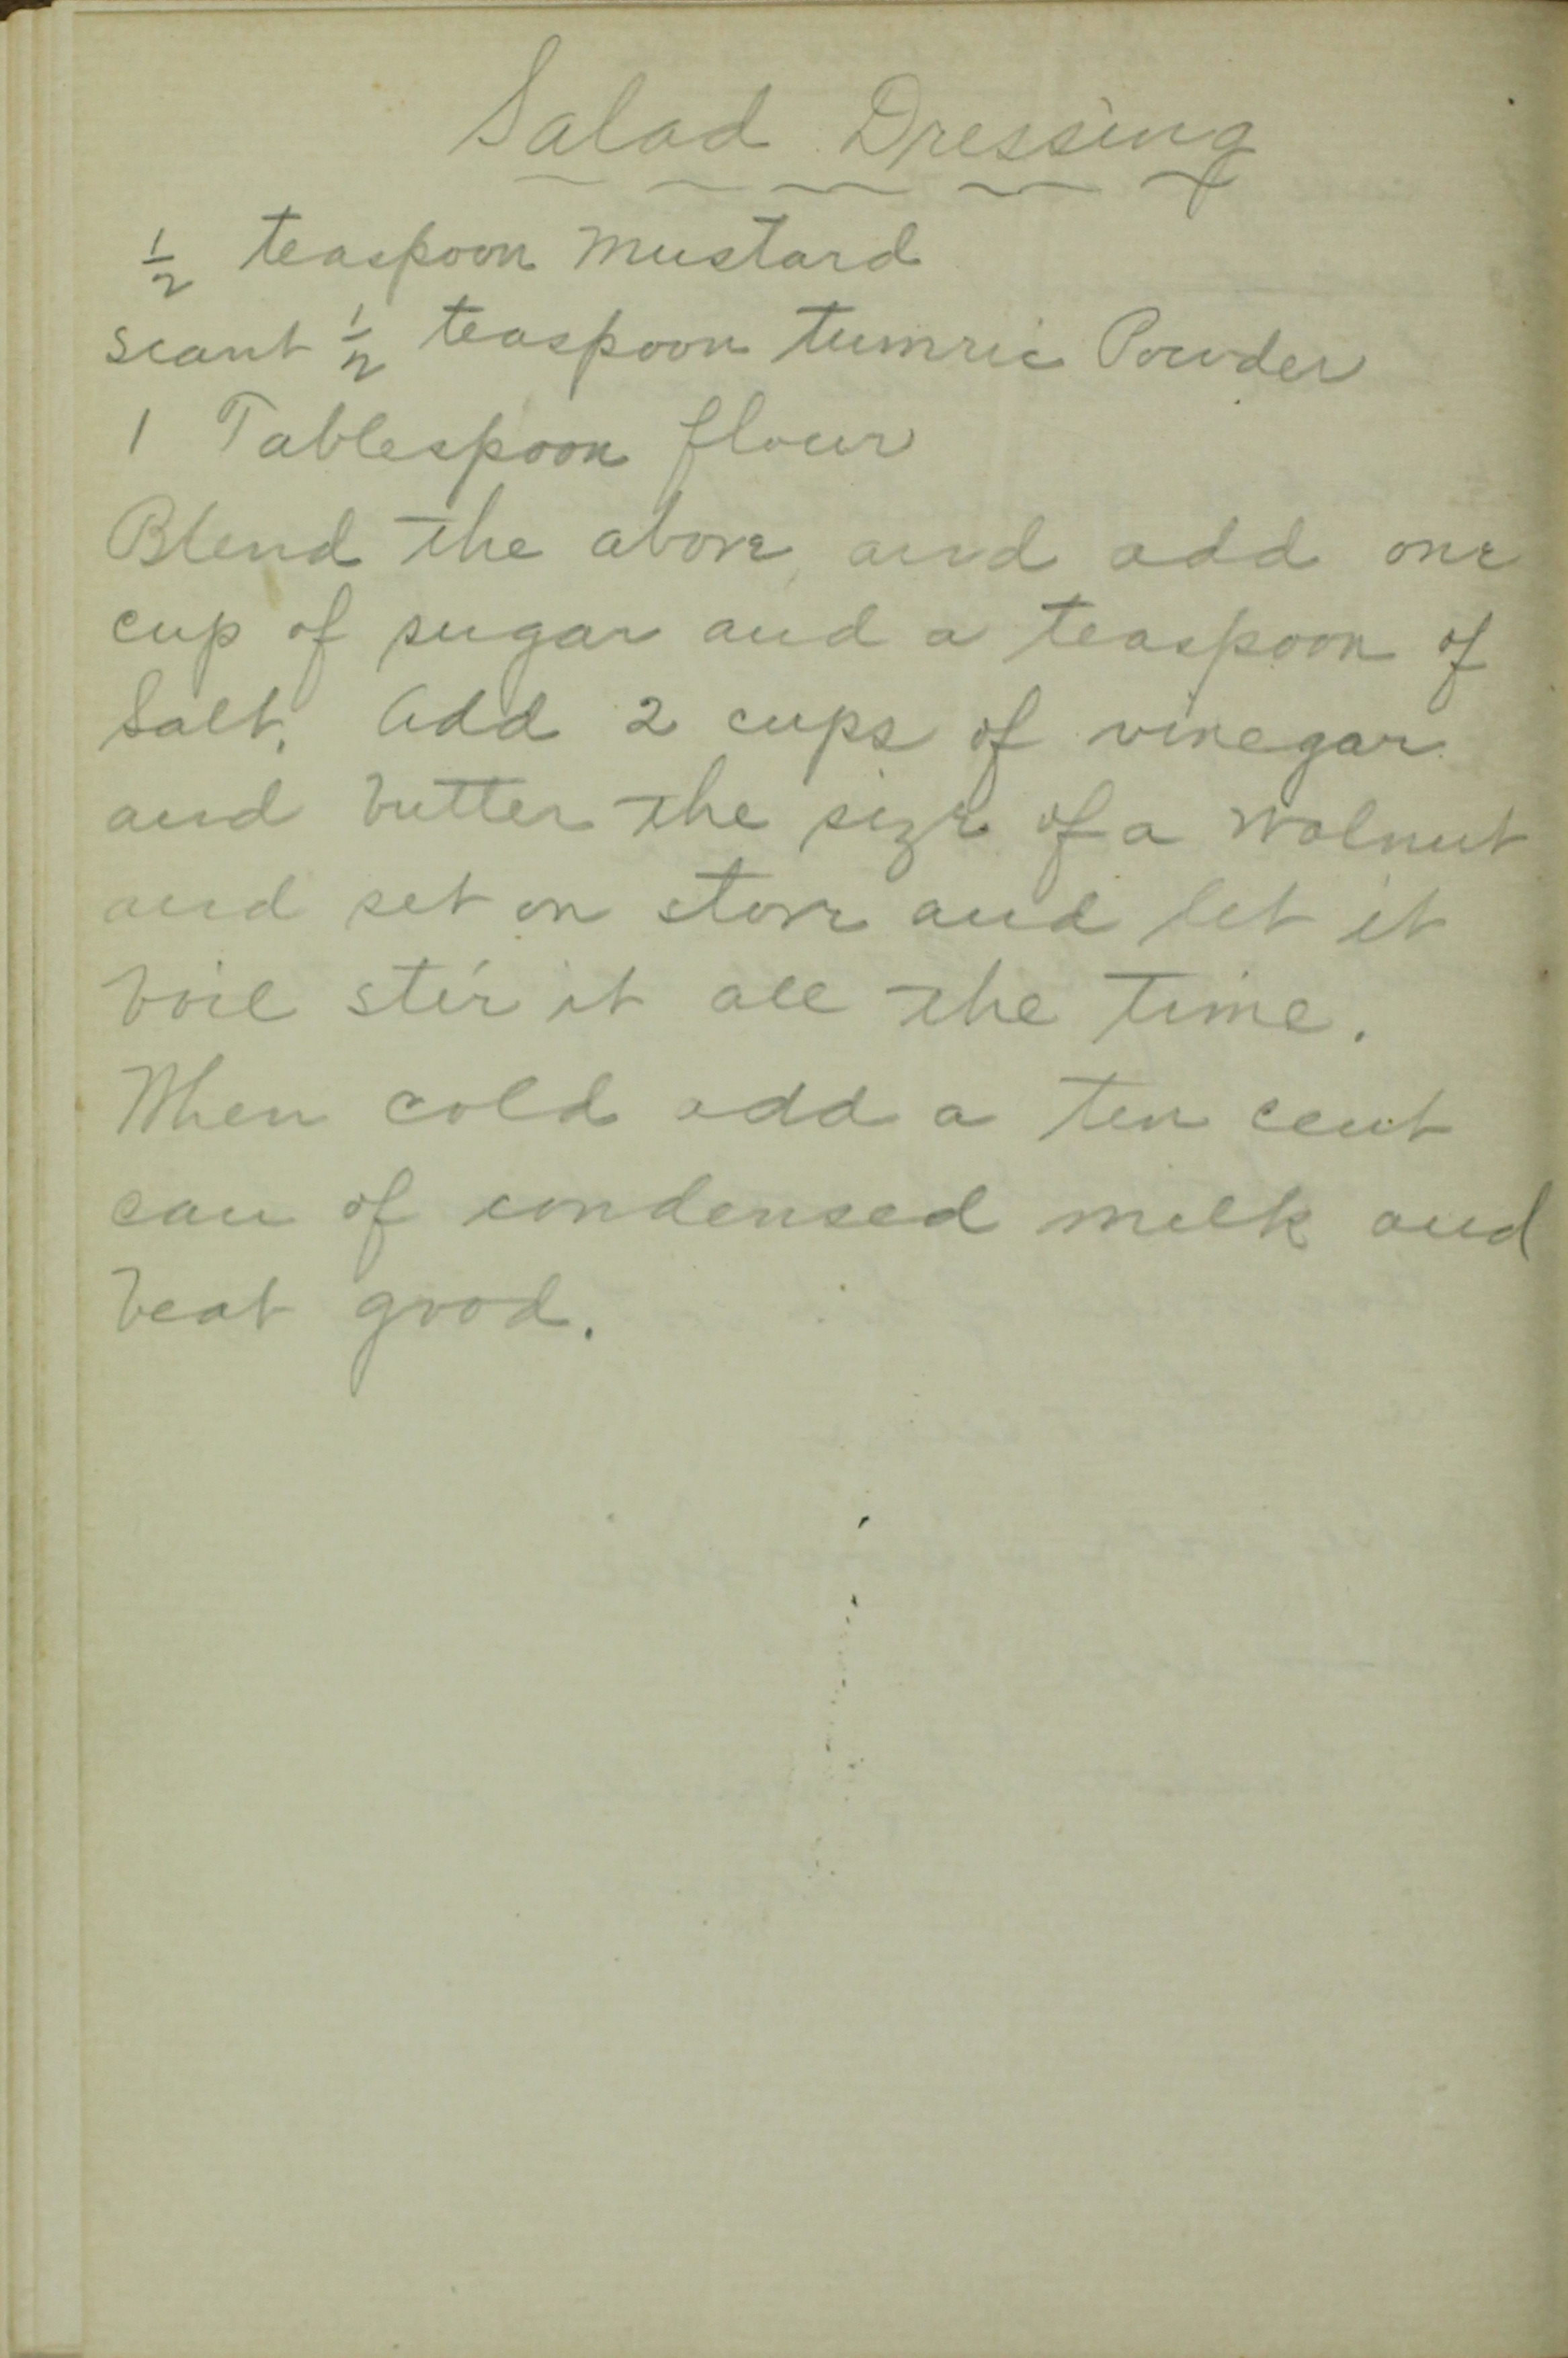 Salad Dressing
½ teaspoon mustard
scant ½ teaspoon tumric Powder
1 Tablespoon flour
Blend the above and add one
cup of sugar and a teaspoon of
Salt. Add 2 cups of vinegar
and butter the size of a walnut
and set on stove and let it
boil stir it all the time.
When cold add a ten cent
can of condensed milk and
beat good.